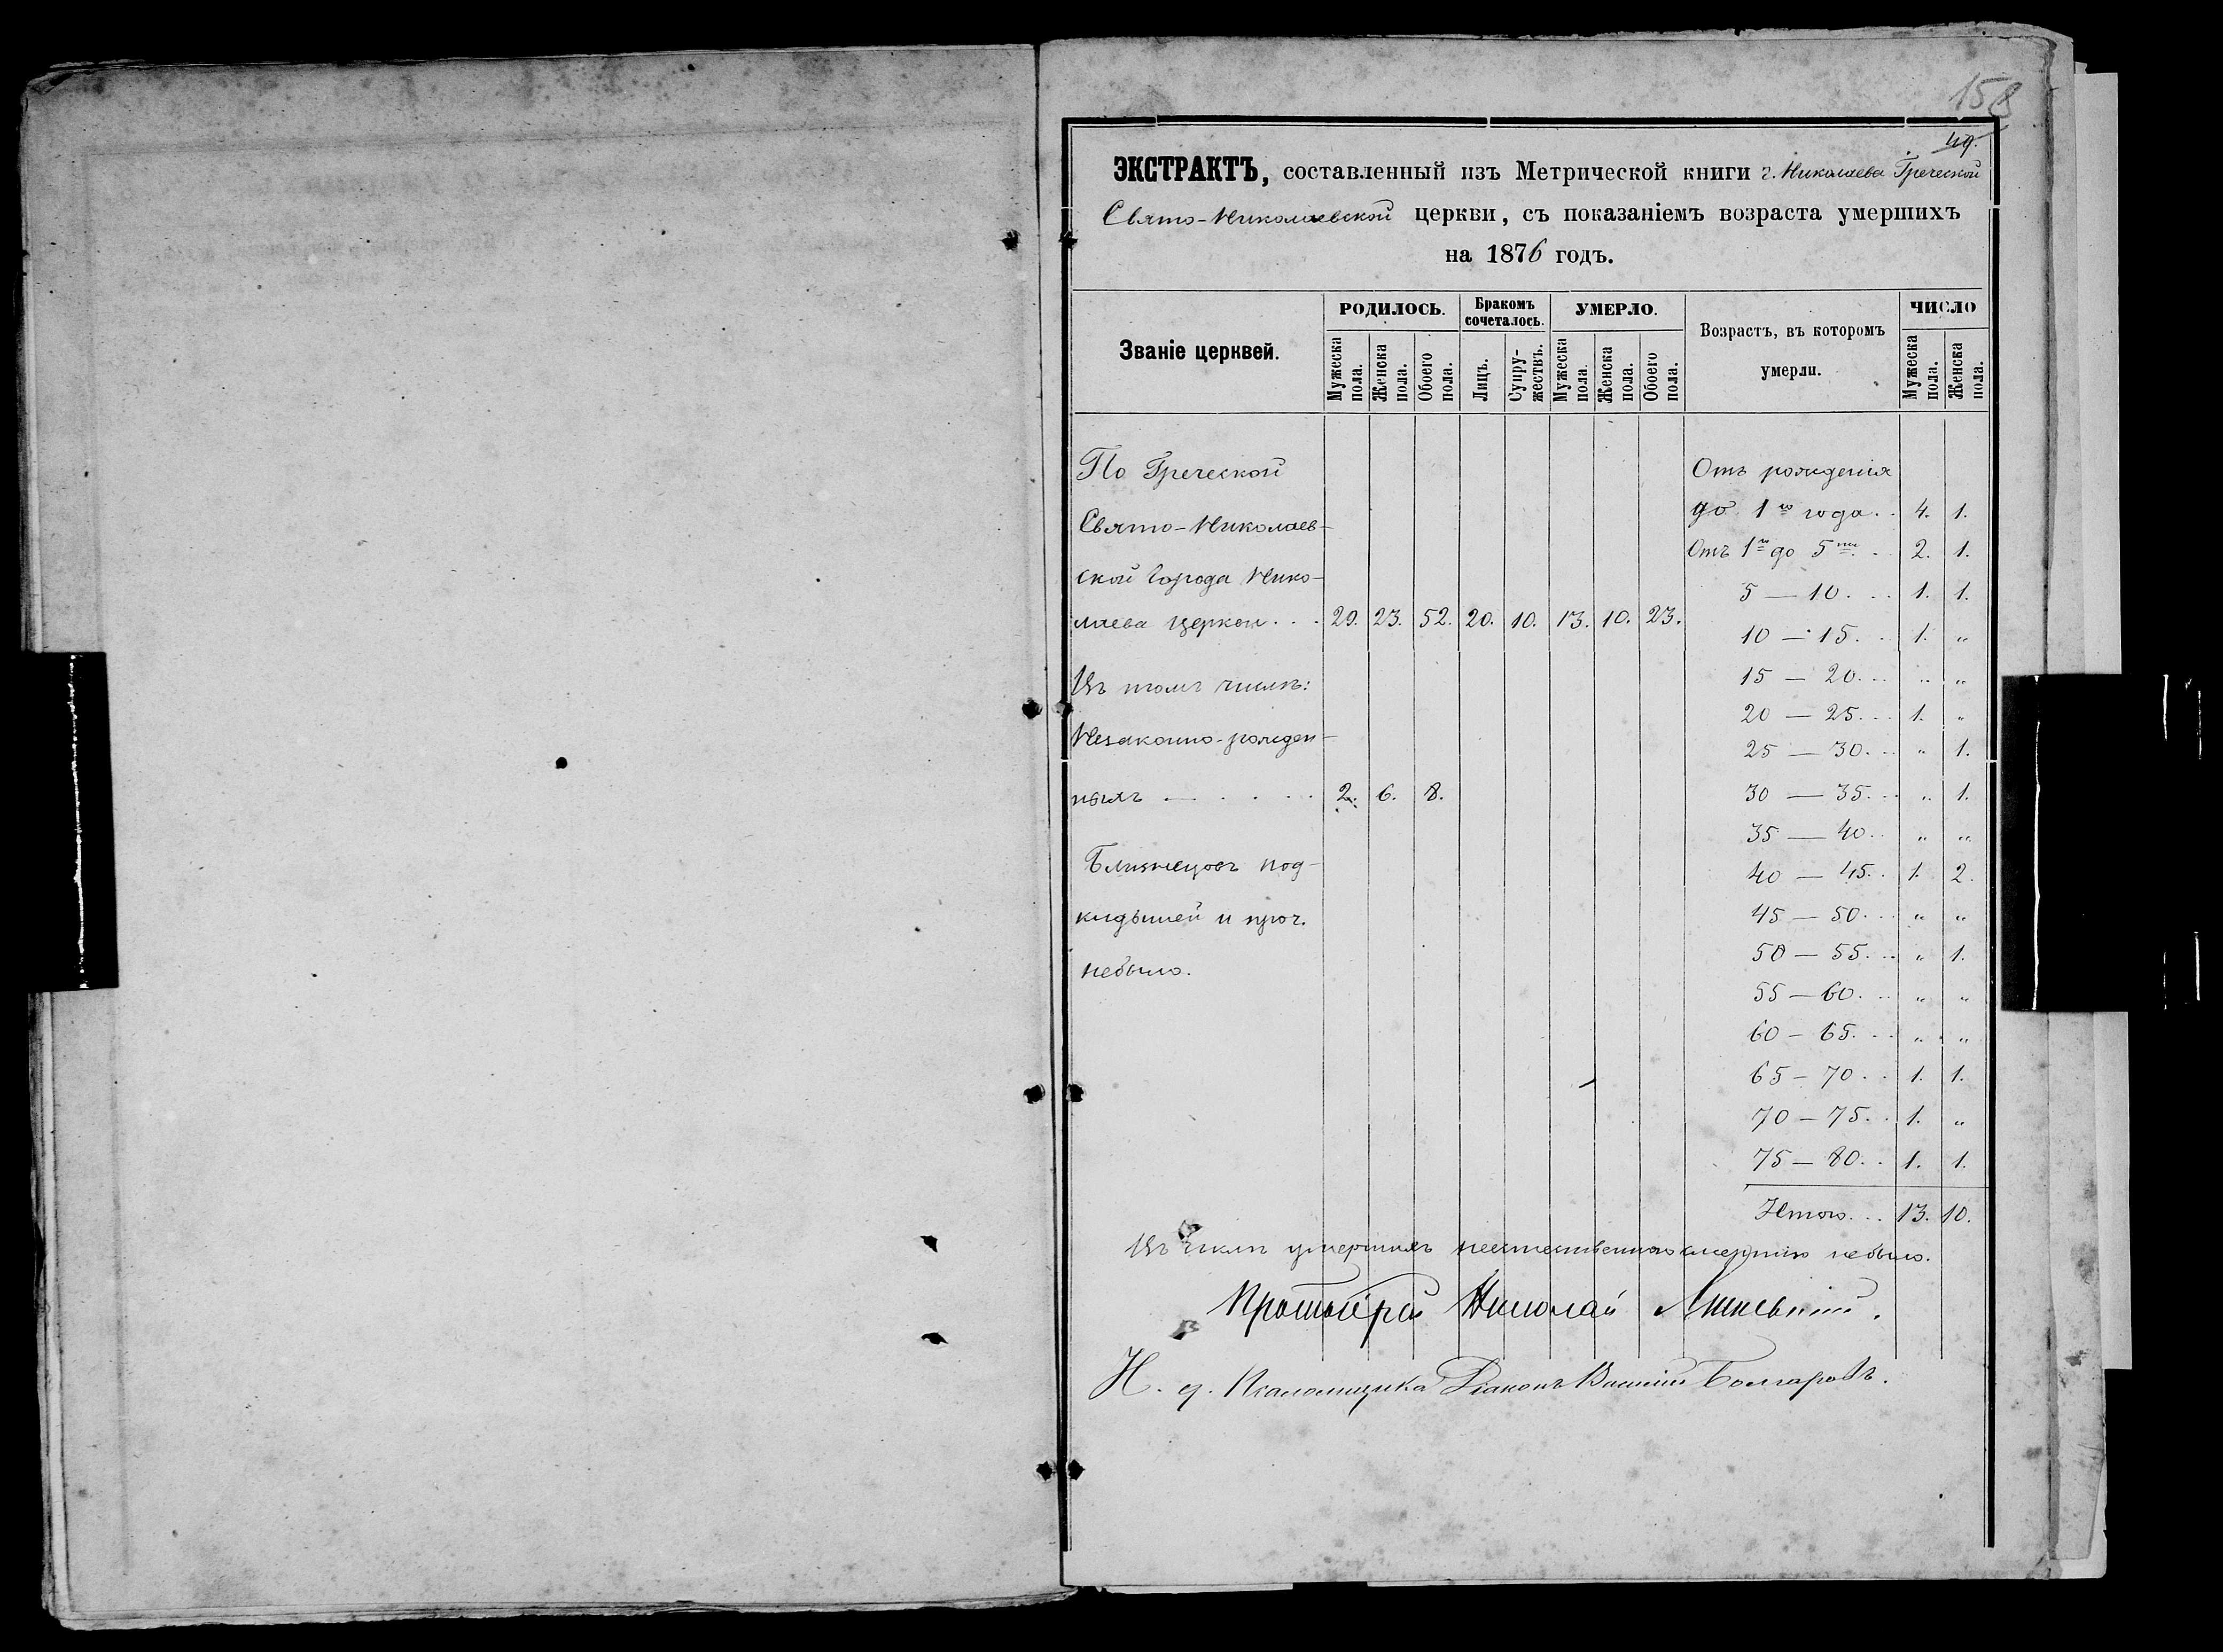 158
49.
ЭКСТРАКТЪ, составленный изъ Метрической книги г. Николаева Греческой
Свято-Николаевской церкви, съ показаніемъ возраста умершихъ
на 1876 годъ.
Званіе церквей.
РОДИЛОСЬ.
Мужеска пола.
Женска пола.
Обоего пола.
Бракомъ сочеталось.
Лицъ.
Супру-жествъ.
УМЕРЛО.
Мужеска пола.
Женска пола.
Обоего пола.
Возрастъ, въ которомъ
умерли.
ЧИСЛО
Мужеска пола.
Женска пола.
По Греческой
Свято-Николаев-
ской города Нико-
лаева церкви . . . 29. 23. 52. 20. 10. 13. 10. 23.
Въ томъ числѣ:
Незаконно-рожден-
ныхъ — . . . . 2. 6. 8.
Близнецовъ под-
кидышей и проч.
небыло.
Отъ рожденія
до 1го года . . 4. 1.
Отъ 1го до 5ти . . 2. 1.
5 — 10 . . . 1. 1.
10 — 15 . . . 1. "
15 — 20 . . . " "
20 — 25 . . . 1. "
25 — 30 . . . " 1.
30 — 35 . . . " 1.
35 — 40 . . " "
40 — 45 . . 1. 2.
45 — 50 . . . " "
50 — 55 . . . " 1.
55 — 60 . . . " "
60 — 65 . . . " "
65 — 70 . . 1. 1.
70 — 75 . . 1. "
75 — 80 . . 1. 1.
Итого . . . 13. 10.
Въ числѣ умершихъ неестественною смертію небыло.
Протоіерей Николай
И. д. Псаломщика Діаконъ Василій Болгаровъ.